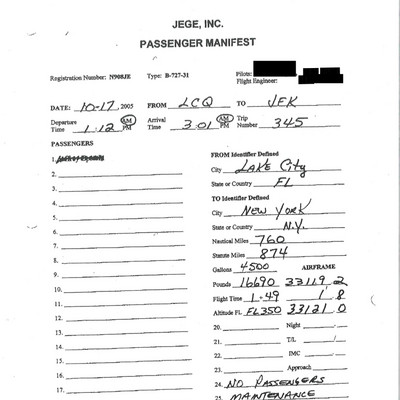 JEGE, INC.
PASSENGER MANIFEST
Registration Number: N908JE Type: B-727-31 Pilots:
Flight Engineer:
DATE: 10-17, 2005 FROM LCQ TO JFK
Departure Time 1:12 AM PM Arrival Time 3:01 AM PM Trip Number 345
PASSENGERS
FROM Identifier Defined
1.
City LAKE CITY
2.
State or Country FL
3.
TO Identifier Defined
4.
City NEW YORK
5.
State or Country N.Y.
6.
Nautical Miles 760
7.
Statute Miles 874
8.
Gallons 4500 AIRFRAME
9.
Pounds 16690 33119 2
10.
Flight Time 1+49 1 8
11.
Altitude FL FL350 33121 0
12.
20. Night
13.
21. T/L /
14.
22. IMC
15.
23. Approach
16.
24. NO PASSENGERS
17.
25. MAINTENANCE